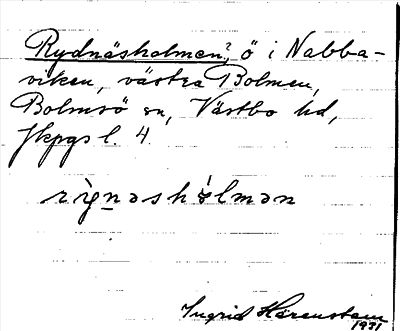 Rydnäsholmen?, ö i Nabba-
viken, västra Bolmen,
Bolmsö sn, Västbo hd,
Jkpgs l. 4
Ingrid Harenstam
1931